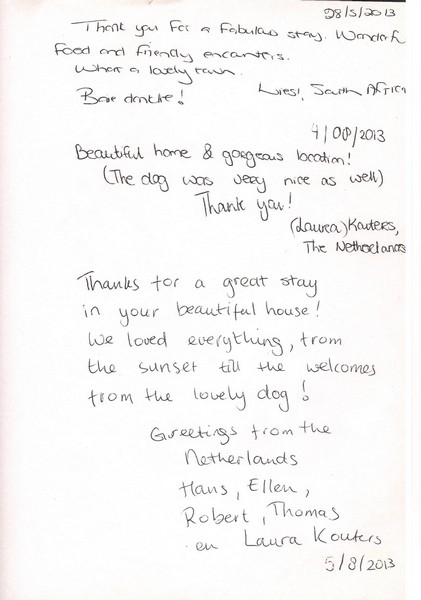 28/5/2013
Thank you for a fabulous stay. Wonderful
food and friendly encounters.
What a lovely town.
Baie dankie!
Liesl, South Africa
4/08/2013
Beautiful home & gorgeous location!
(The dog was very nice as well)
Thank you!
(Laura) Kouters,
The Netherlands
Thanks for a great stay
in your beautiful house!
We loved everything, from
the sunset till the welcomes
from the lovely dog!
Greetings from the
Netherlands
Hans, Ellen,
Robert, Thomas
en Laura Kouters
5/8/2013